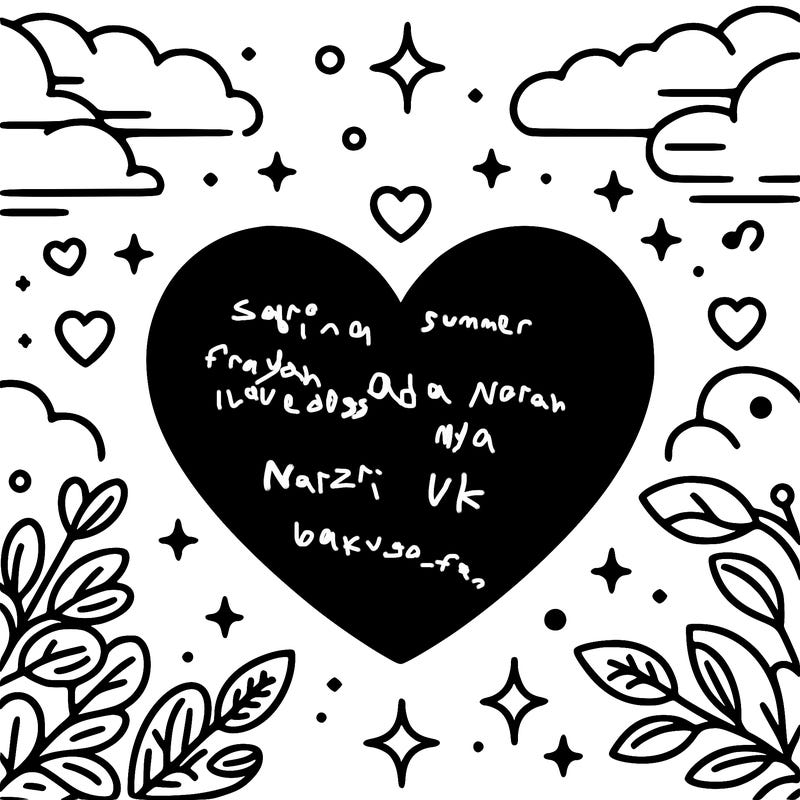 Sabrina summer
frayah
ILoveadogs Ada Norah
mya
Narzri Vk
bakugo_fan